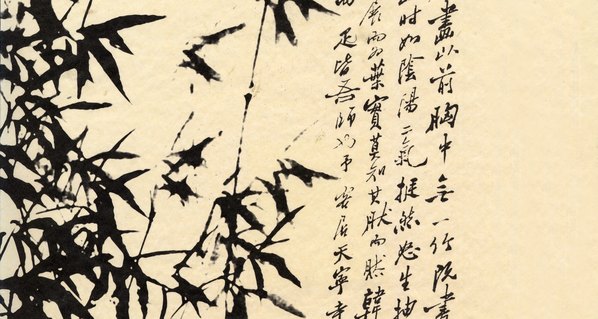 畫以前胸中無一竹既畫
時如陰陽二氣挺然怒生抽
展而為葉實莫知其然而然韓
足皆吾師也予客居天寧寺